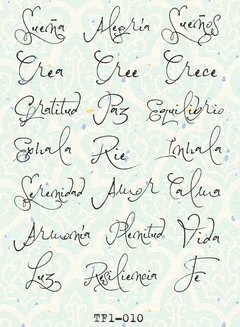 Sueña Alegría Sueños
Crea Cree Crece
Gratitud Paz Equilibrio
Exhala Rie Inhala
Serenidad Amor Calma
Armonia Plenitud Vida
Luz Resiliencia Fe
TF1-010